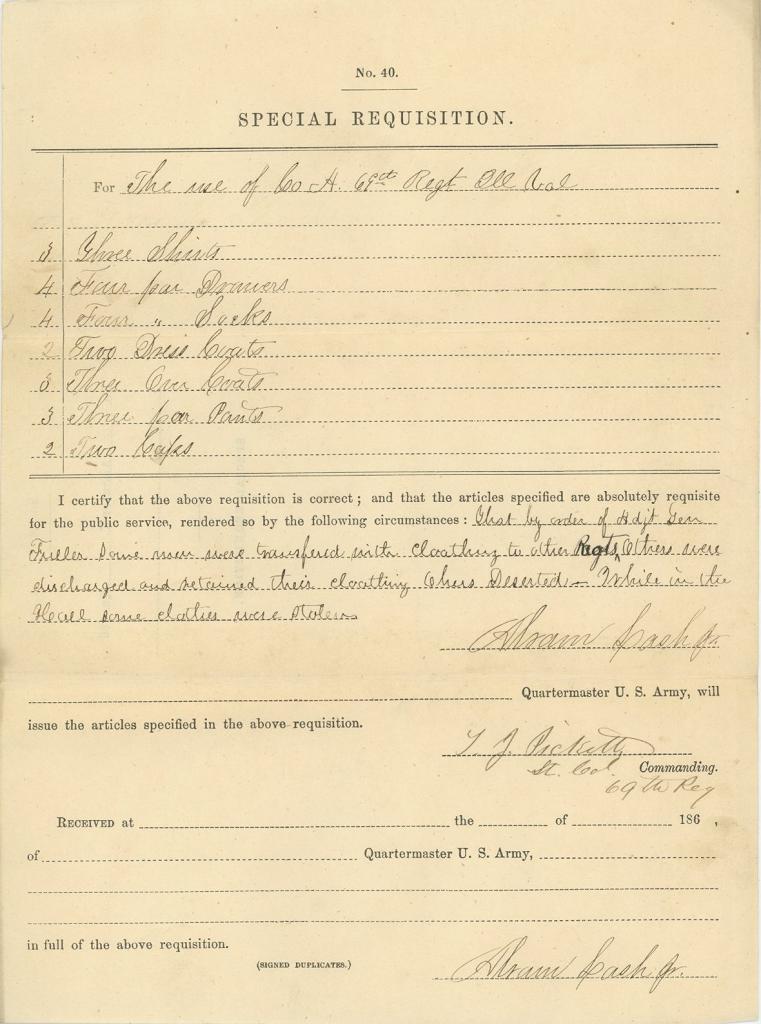 No. 40.
SPECIAL REQUISITION.
For The use of Co H. 69th Regt Ill Vol
3 Three Shirts
4 Four par Drawers
4 Four " Socks
2 Two Dress Coats
3 Three Over Coats
3 Three par Pants
2 Two Caps
I certify that the above requisition is correct; and that the articles specified are absolutely requisite
for the public service, rendered so by the following circumstances: That by order of Adjt Gen
Fuller some men were transfered with cloathing to other Regts, Others were
discharged and retained their cloathing Others Deserted – While in the
some clothes were stolen
Abram Cash Jr.
Quartermaster U. S. Army, will
issue the articles specified in the above requisition.
T J. Pickett
Lt. Col. Commanding.
69th Reg
RECEIVED at the of 186 ,
of Quartermaster U. S. Army,
in full of the above requisition.
(SIGNED DUPLICATES.)
Abram Cash Jr.